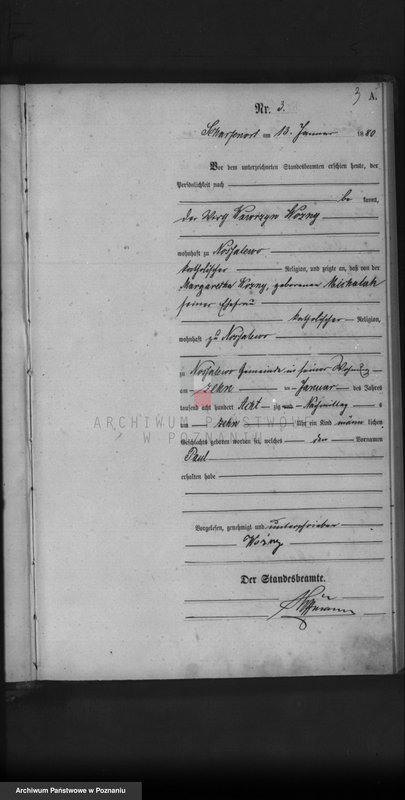 3 A.
Nr. 3.
Scharfenort am 13. Januar 1880
Vor dem unterzeichneten Standesbeamten erschien heute, der
Persönlichkeit nach
be kannt,
der Wawrzyn Wozny
wohnhaft zu Nossalewo
katholischer Religion, und zeigte an, daß von der
Margaretha Wozny, geborenen Michalak
seiner Ehefrau
katholischer Religion,
wohnhaft zu Nossalewo
zu Nossalewo Gemeinde in seiner Wohnung
am zehn ten Januar des Jahres
tausend acht hundert Acht zig und Nachmittag s
um zehn Uhr ein Kind männ lichen
Geschlechts geboren worden sei, welches den Vornamen
Paul
erhalten habe
ARCHIWUM PAŃSTWOWE
W POZNANIU
Vorgelesen, genehmigt und unterschrieben
Woźny
Der Standesbeamte.
Archiwum Państwowe w Poznaniu